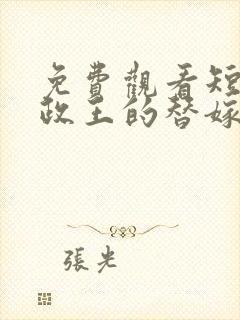 免費觀看短
政王的替嫁
張光